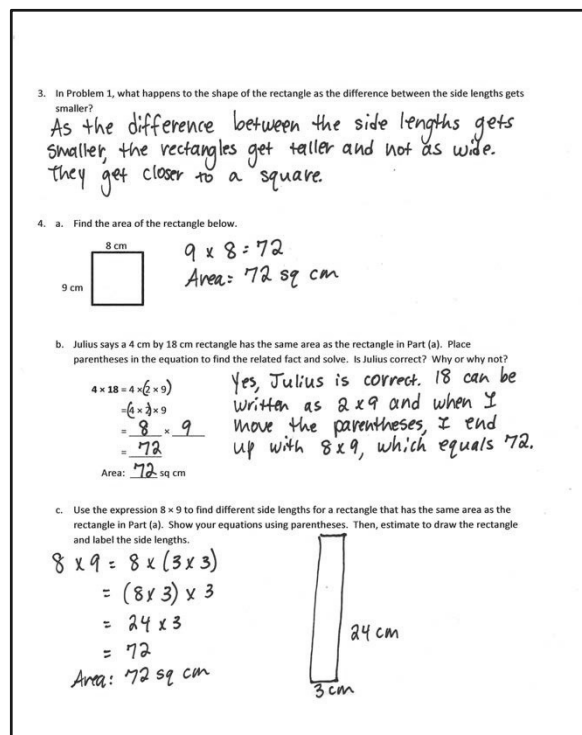 3. In Problem 1, what happens to the shape of the rectangle as the difference between the side lengths gets
smaller?
As the difference between the side lengths gets
smaller, the rectangles get taller and not as wide.
They get closer to a square.
4. a. Find the area of the rectangle below.
8 cm
9 cm
9 x 8 = 72
Area: 72 sq cm
b. Julius says a 4 cm by 18 cm rectangle has the same area as the rectangle in Part (a). Place
parentheses in the equation to find the related fact and solve. Is Julius correct? Why or why not?
4 × 18 = 4 ×(2 × 9)
=(4 × 2)× 9
= 8 × 9
= 72
Area: 72 sq cm
Yes, Julius is correct. 18 can be
written as 2x9 and when I
move the parentheses, I end
up with 8x9, which equals 72.
c. Use the expression 8 × 9 to find different side lengths for a rectangle that has the same area as the
rectangle in Part (a). Show your equations using parentheses. Then, estimate to draw the rectangle
and label the side lengths.
8 x 9 = 8 x (3 x 3)
= (8 x 3) x 3
= 24 x 3
= 72
Area: 72 sq cm
24 cm
3 cm